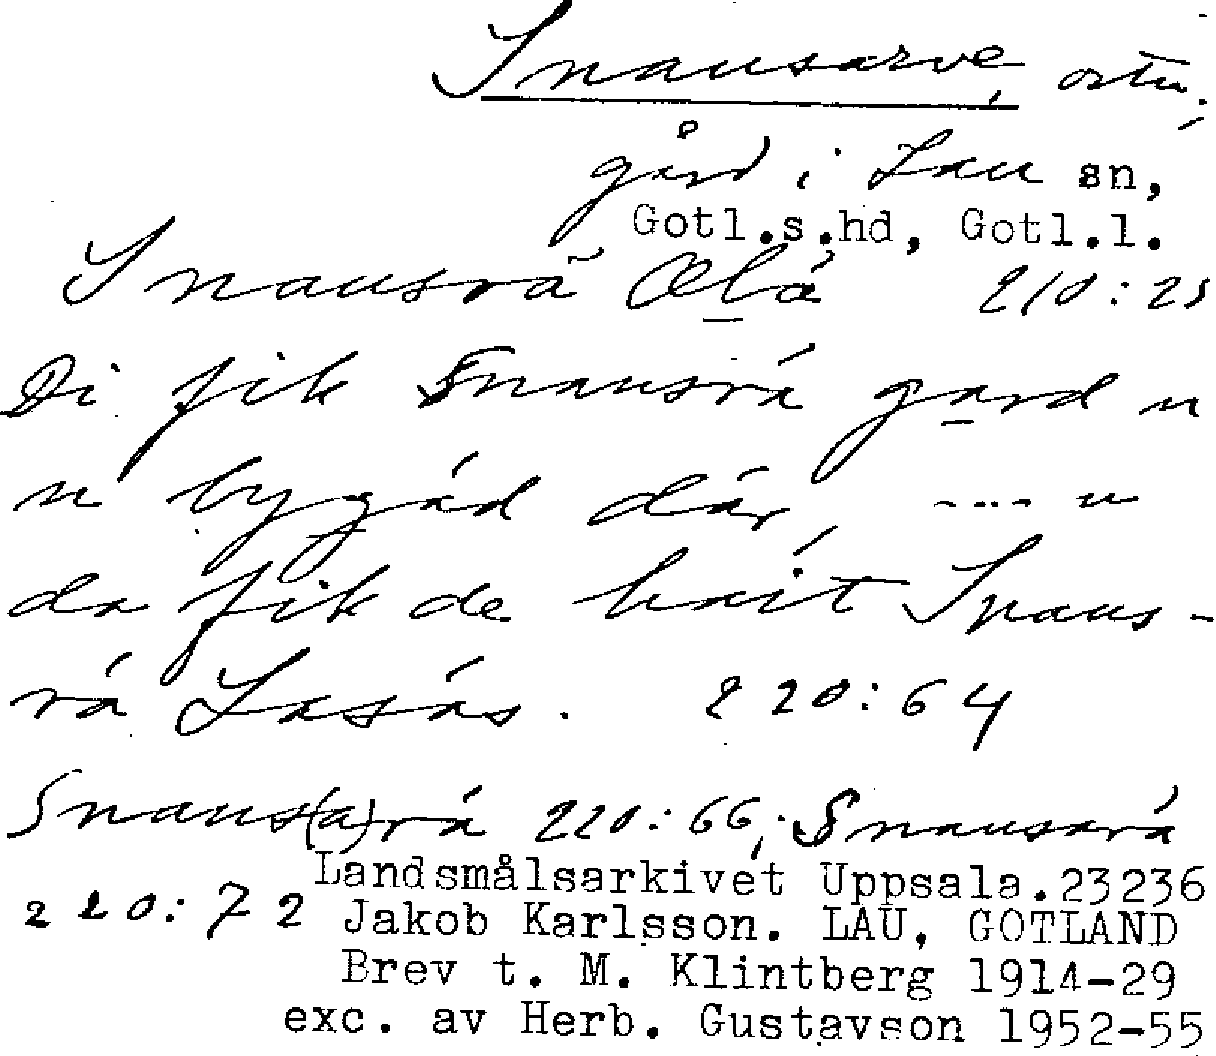 Snausarve, ortn.;
gård i Lau sn,
Gotl.s.hd, Gotl.l.
Snausrá Ola 210:25
Di fik Snausrá gard u
u bygád dár, --- u
da fik de hait Snaus-
rá Lasás. 220:64
Snaus(a)rá 220:66; Snausará
220:72 Landsmålsarkivet Uppsala.23236
Jakob Karlsson. LAU, GOTLAND
Brev t. M. Klintberg 1914-29
exc. av Herb. Gustavson 1952-55